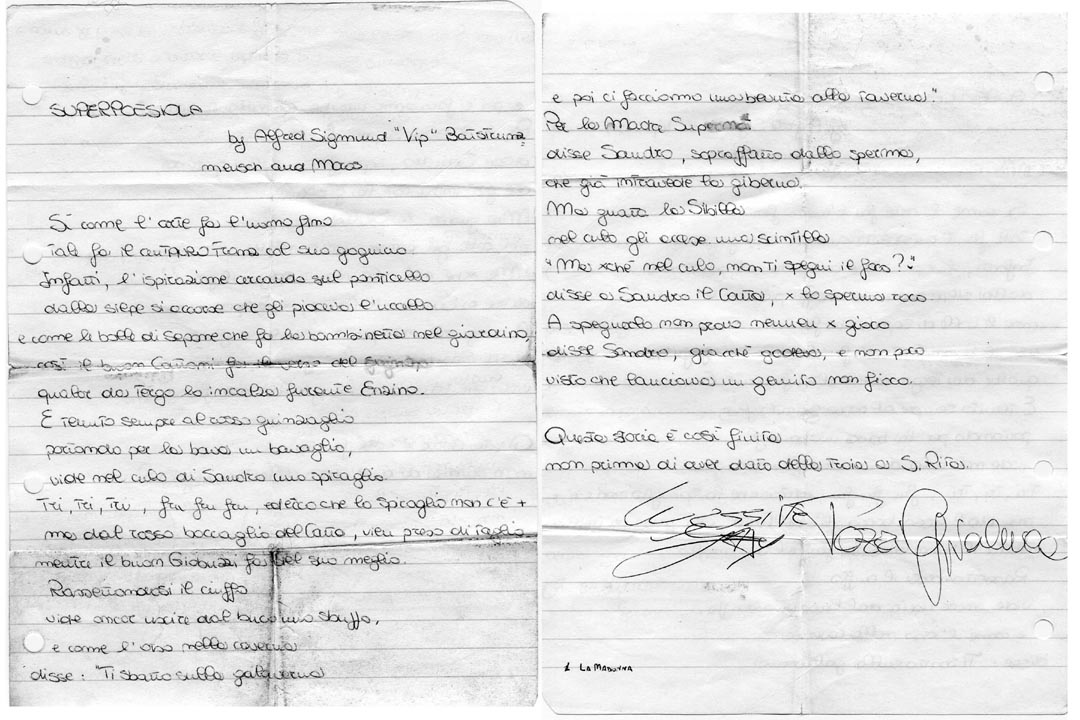 SUPERPOESIOLA
by Alfred Sigmund "Vip" Batistuna
mensch and Maos
Sì come l'arte fa l'uomo fino
Tale fa il centauro Frama col suo gagnino
Infatti, l'ispirazione cercando sul ponticello
dalla siepe si accorse che gli pioceva l'uccello
e come le bolle di sapone che fa la bambinetta nel giardino,
così il buon Cattani fa il verso del
qualor da Tergo lo incalza furente Enzino.
E tenuto sempre al rosso guinzaglio
portando per la bava un bavaglio,
vide nel culo di Sandro uno spiraglio
Tri, tri, tru, fru fru fru, ed ecco che lo spiraglio non c'è +
ma dal rosso boccaglio del Catta, vien preso di Taglio
mentre il buon Giobuzzi fa del suo meglio.
Rassettandosi il ciuffo
vide ancor uscire dal buco uno sbuffo,
e come l'orso nella caverna
disse: "Ti sbatto sulla galaverna
e poi ci facciamo una bevuta alla Taverna."
Per la Madre Superma
disse Sandro, sopraffatto dallo sperma,
che già intravede la giberna.
Ma guarda la Sibilla
nel culo gli accese una scintilla
"Ma xchè nel culo, non ti spegni il foco?"
disse a Sandro il Catta, x lo sperma roco
A spegnerlo non provo nemmen x gioco
disse Sandro, giacchè godeva, e non poco
visto che lanciava un gemito non fioco.
Questa storia è così finita
non prima di aver dato della Troia a S. Rita.
1 LA MADONNA